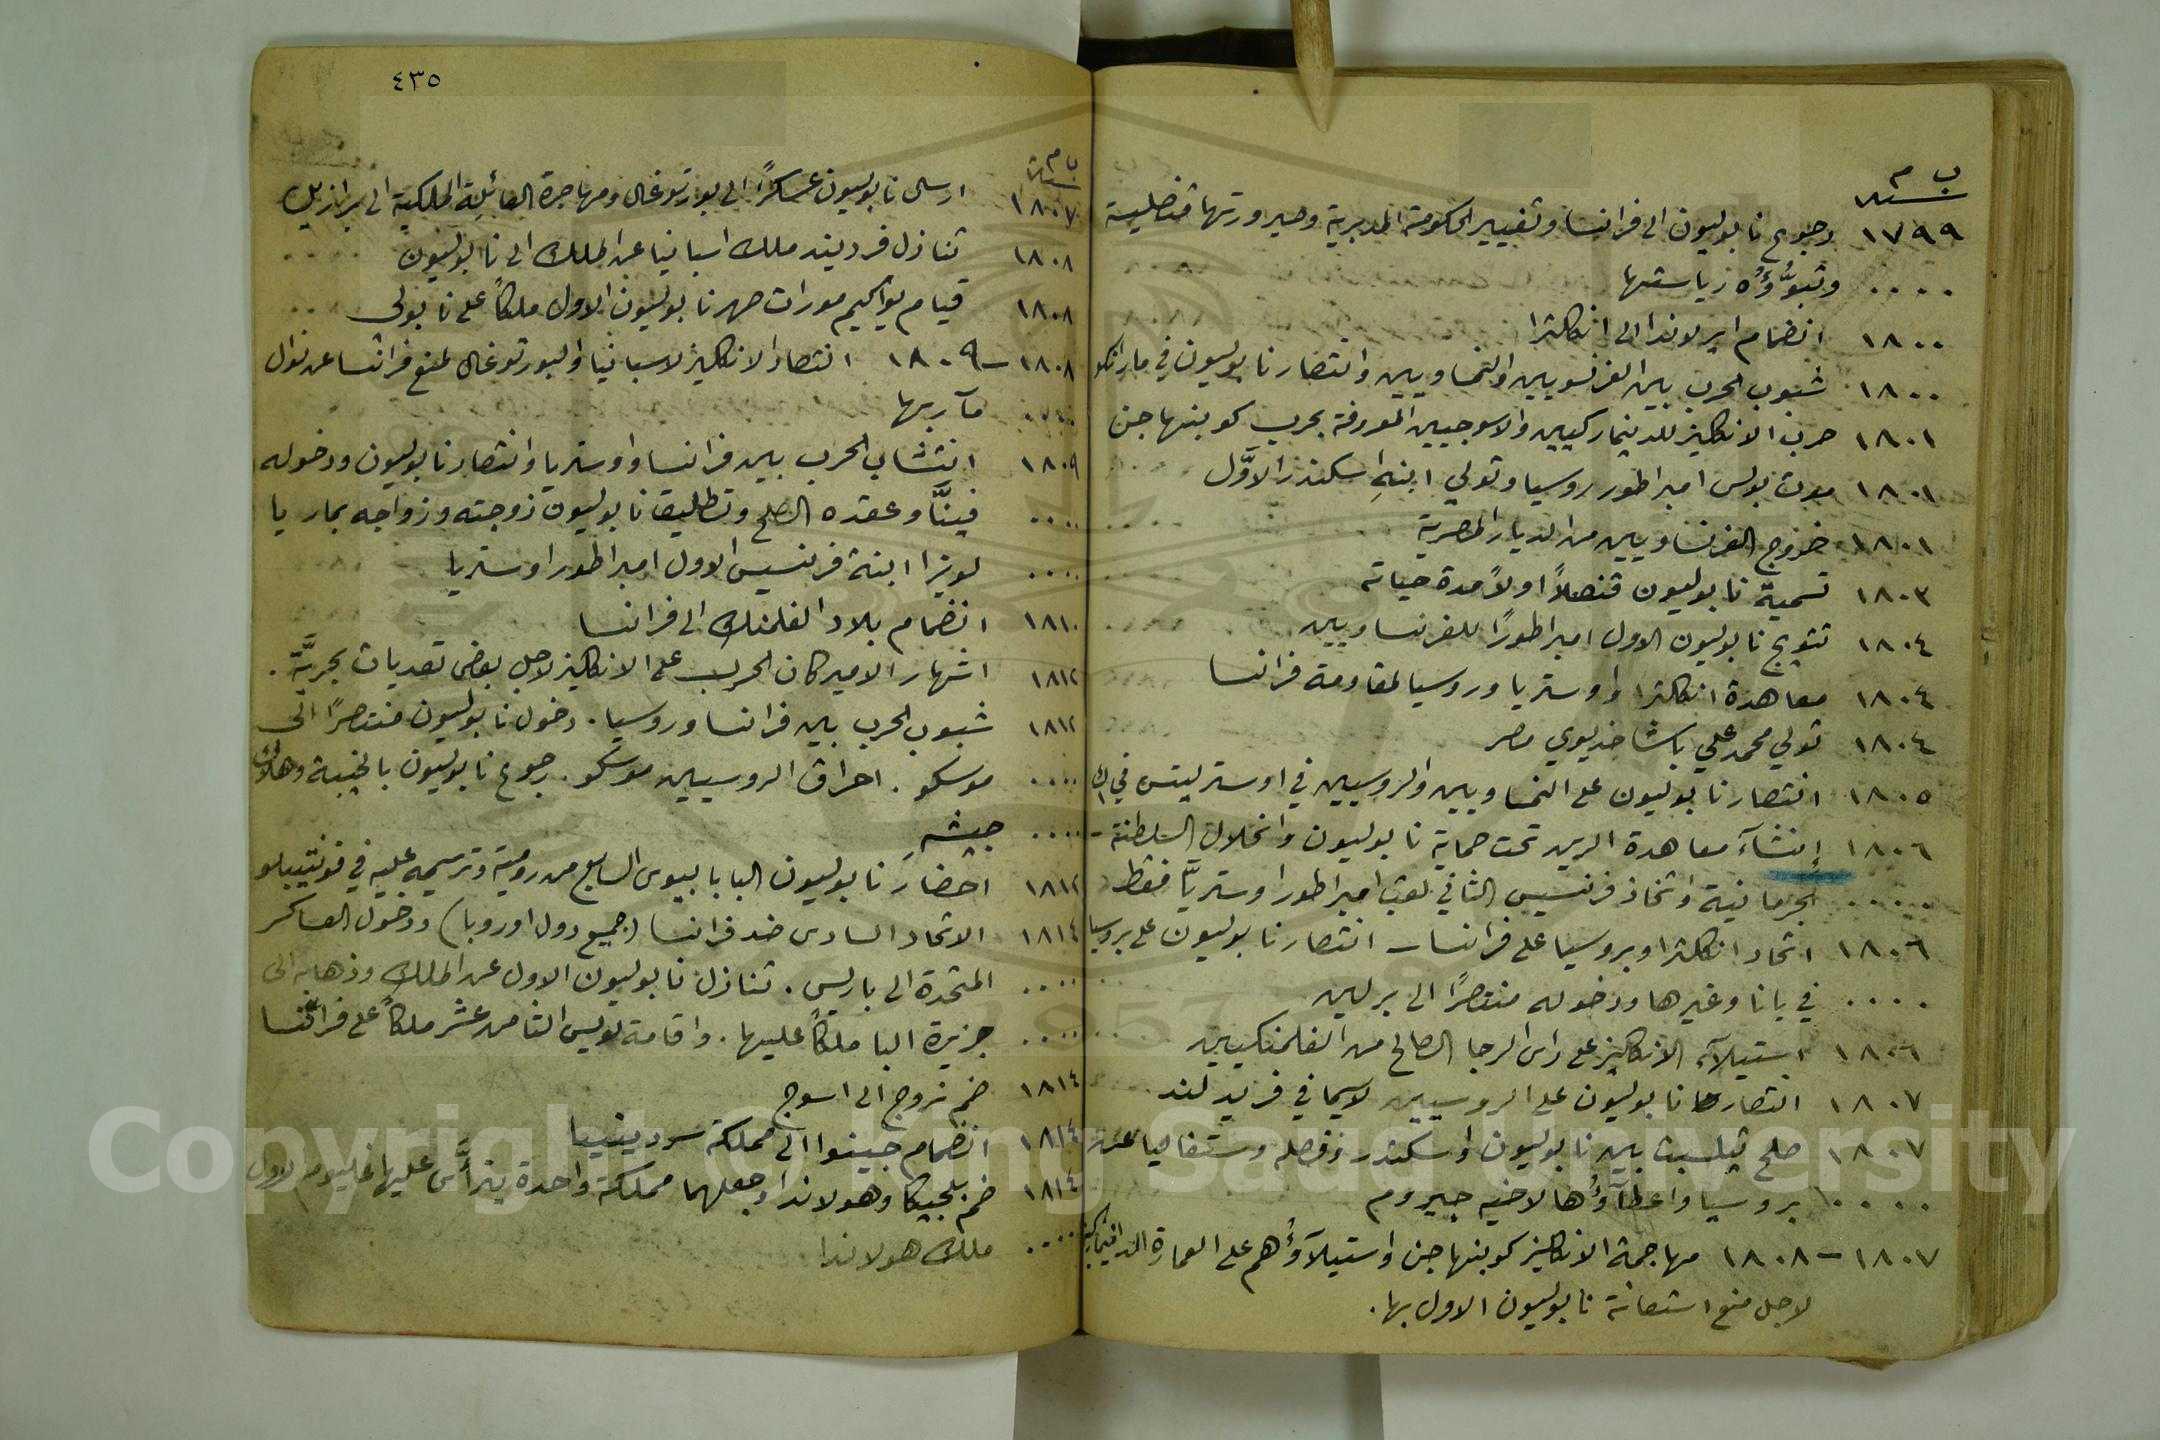 ب م
سنة
١٧٩٩ رجوع نابوليون الى فرانسا وتغيير الحكومة المديرية وصيرورتها قنصلية
.... وتبوُّؤُه رياستها
١٨٠٠ انضمام ايرلاندا الى انكلترا
١٨٠٠ شبوب الحرب بين الفرنسويين والنمساويين وانتصار نابوليون في مارنكو
١٨٠١ حرب الانكليز للدنيماركيين والاسوجيين المعروفة بحرب كوبنهاجن
١٨٠١ موت بولس امبراطور روسيا وتولي ابنهِ اسكندر الاوَّل
١٨٠١ خروج الفرنساويين من الديار المصرية
١٨٠٣ تسمية نابوليون قنصلاً اولاً مدة حياته
١٨٠٤ تتويج نابوليون الاول امبراطورًا للفرنساويين
١٨٠٤ معاهدة انكلترا واوستريا وروسيا لمقاومة فرانسا
١٨٠٤ تولي محمد علي باشا خديوي مصر
١٨٠٥ انتصار نابوليون على النمساويين والروسيين في اوسترليتس في ك١
١٨٠٦ إنشآء معاهدة الرين تحت حماية نابوليون وانحلال السلطنة
.... الجرمانية واتخاذ فرنسيس الثاني لقب امبراطور اوستريَّا فقط
١٨٠٦ اتحاد انكلترا وبروسيا على فرانسا – انتصار نابوليون على بروسيا
.... في يانا وغيرها ودخوله منتصرًا الى برلين
١٨٠٦ استيلآء الانكليز على راس الرجا الصالح من الفلمنكيين
١٨٠٧ انتصار نابوليون على الروسيين لاسيما في فريدلند
١٨٠٧ صلح تيلسيت بين نابوليون واسكندر وفصله وستفاليا عن
.... بروسيا واعطآؤُها لاخيه جيروم
١٨٠٧–١٨٠٨ مهاجمة الانكليز كوبنهاجن واستيلآؤُهم على العمارة الدانيماركية
لاجل منع استعانة نابوليون الاول بها.
٤٣٥
ب م
سنة
١٨٠٧ ارسل نابوليون عسكرًا الى بورتوغال ومهاجرة العائلة الملكية الى برازيل
١٨٠٨ تنازل فرديند ملك اسبانيا عن الملك الى نابوليون
١٨٠٨ قيام يواكيم مورات صهر نابوليون الاول ملكًا على نابولى
١٨٠٨–١٨٠٩ انتصار الانكليز لاسبانيا والبورتوغال لمنع فرانسا عن نوال
.... مآربها
١٨٠٩ انتشاب الحرب بين فرانسا واوستريا وانتصار نابوليون ودخوله
.... فينَّا وعقده الصلح وتطليق نابوليون زوجته وزواجه بماريا
.... لويزا ابنة فرنسيس الاول امبراطور اوستريا
١٨١٠ انضمام بلاد الفلمنك الى فرانسا
١٨١٢ اشهار الاميركان الحرب على الانكليز لاجل بعض تعديات بحريَّة.
١٨١٢ شبوب الحرب بين فرانسا وروسيا. دخول نابوليون منتصرًا الى
.... موسكو. احراق الروسيين موسكو. رجوع نابوليون بالخيبة وهلاك
.... جيشهِ
١٨١٢ احضار نابوليون البابا بيوس السابع من رومية وترسيمه عليه في فونتينبلو
١٨١٤ الاتحاد السادس ضد فرانسا (جميع دول اوروبا) ودخول العساكر
.... المتحدة الى باريس. تنازل نابوليون الاول عن الملك وذهابه الى
.... جزيرة البا ملكًا عليها. واقامة لويس الثامن عشر ملكًا على فرانسا
١٨١٤ ضم نروج الى اسوج
١٨١٤ انضمام جينوا الى مملكة سردينيا
١٨١٤ ضم بلجيكا وهولاندا وجعلهما مملكة واحدة يترأَّس عليها غليوم الاول
.... ملك هولاندا
Copyright © King Saud University